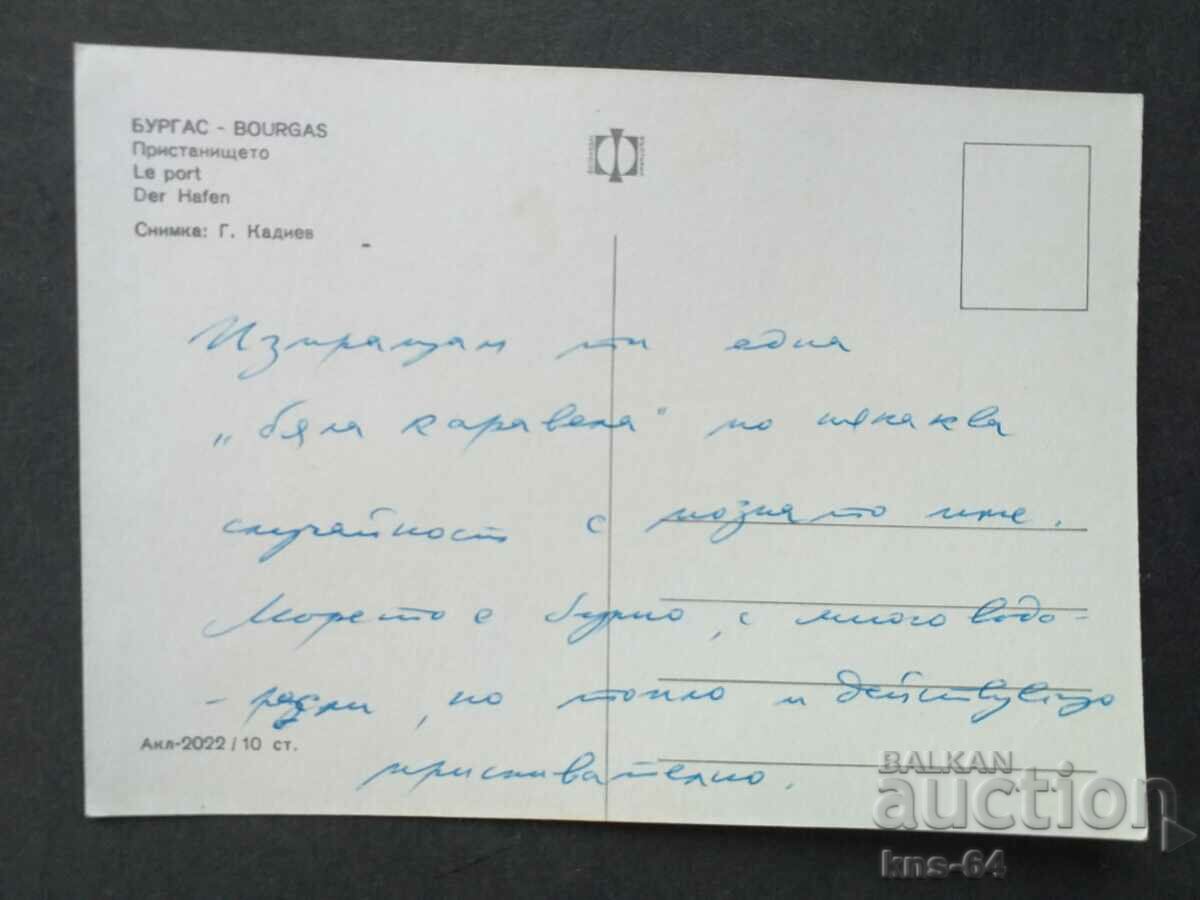 БУРГАС - BOURGAS
Пристанището
Le port
Der Hafen
Снимка: Г. Кадиев
Изпращам ти една
„бяла каравела" по някаква
случайност с познато име.
Морето е бурно, с много водо-
-расли, но топло и действува
Акл-2022/10 ст.
приспивателно.
BALKAN
auction
kns-64